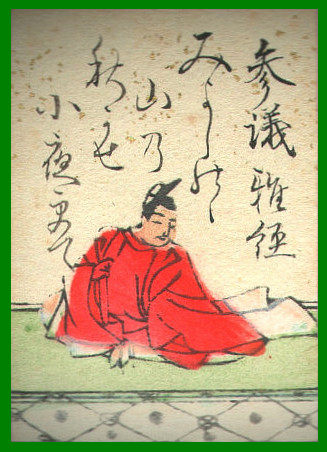 参議雅経
みよしのゝ
山乃
秋かせ
小夜更て